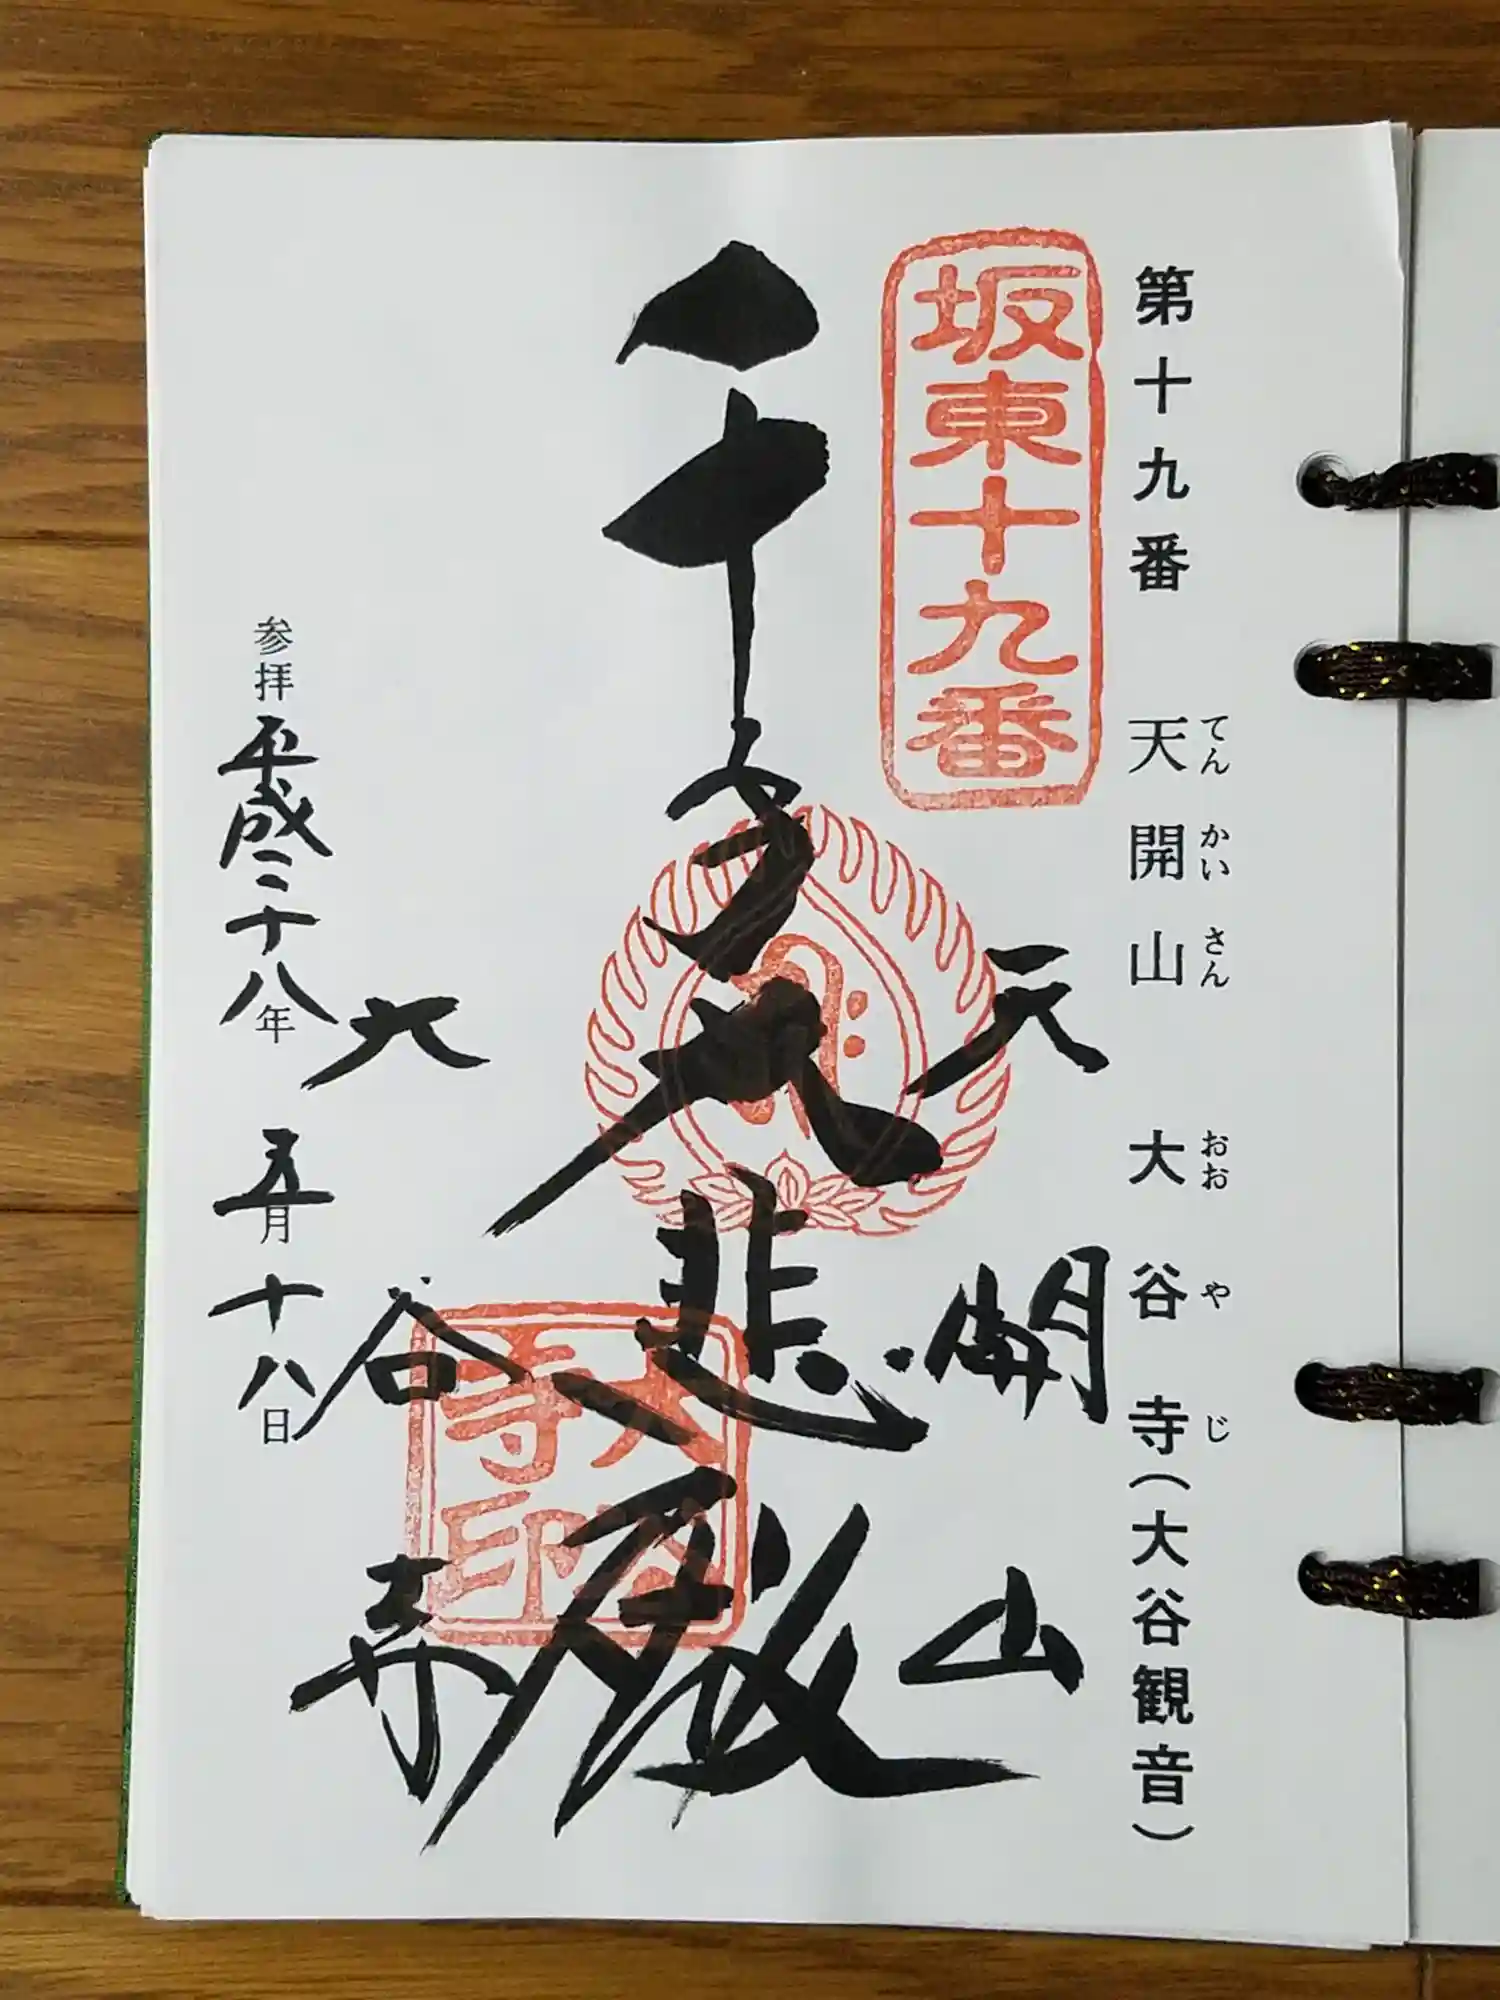 第十九番 天開山 大谷寺(大谷観音)
てんかいさん おおやじ
坂東十九番
天開山
千手大悲殿
大谷寺
大谷寺印
参拝 平成二十八年 五月 十八日